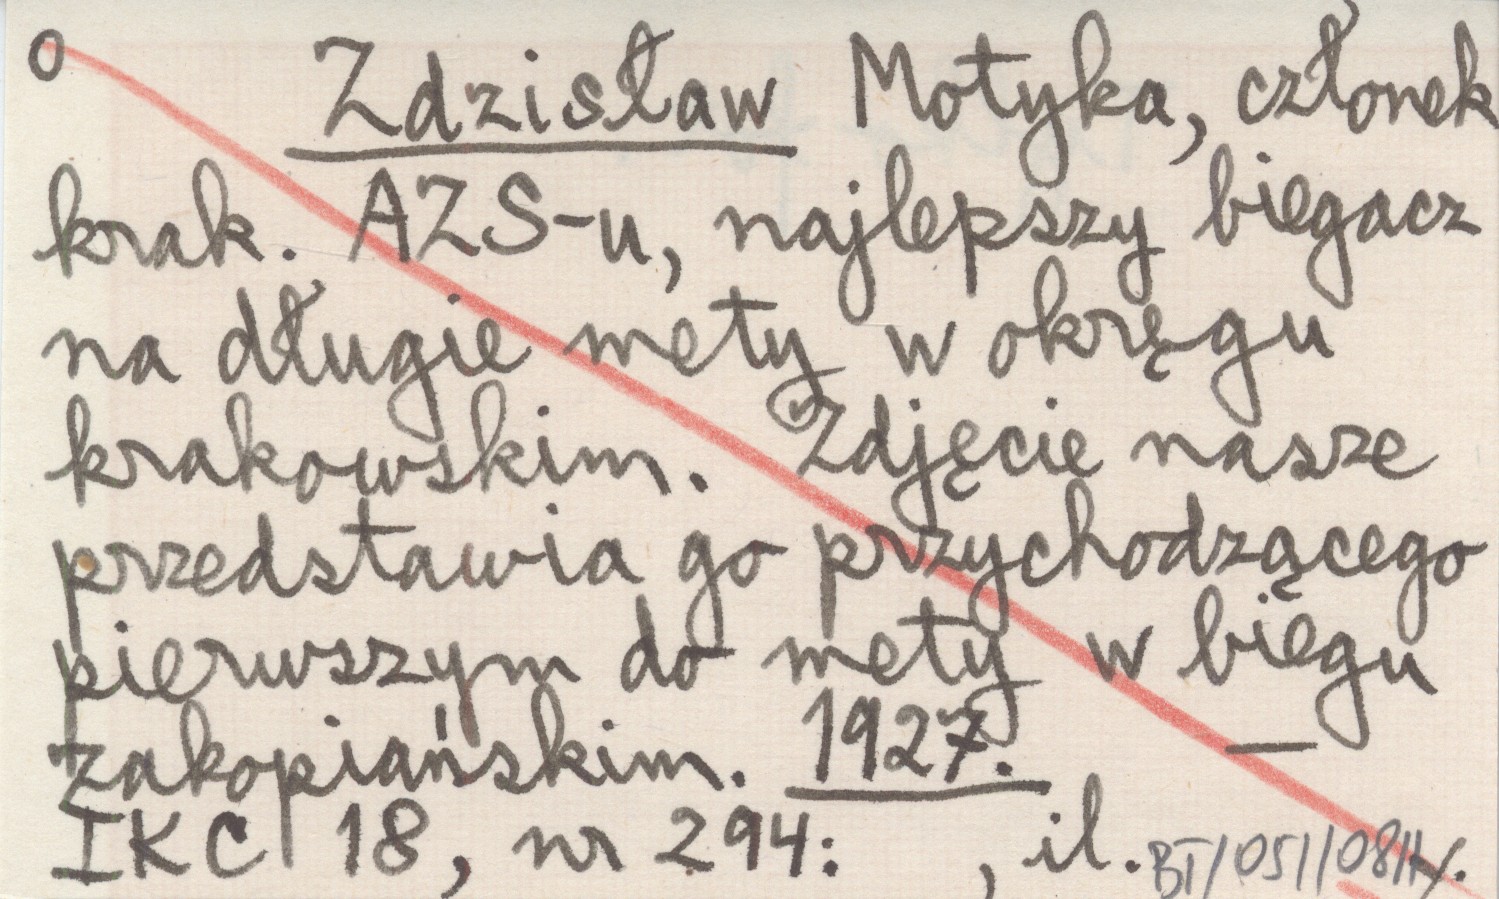 o Zdzisław Motyka, członek
krak. AZS-u, najlepszy biegacz
na długie mety w okręgu
krakowskim. Zdjęcie nasze
przedstawia go przychodzącego
pierwszym do mety w biegu
zakopiańskim. 1927. —
IKC 18, nr 294: , il.